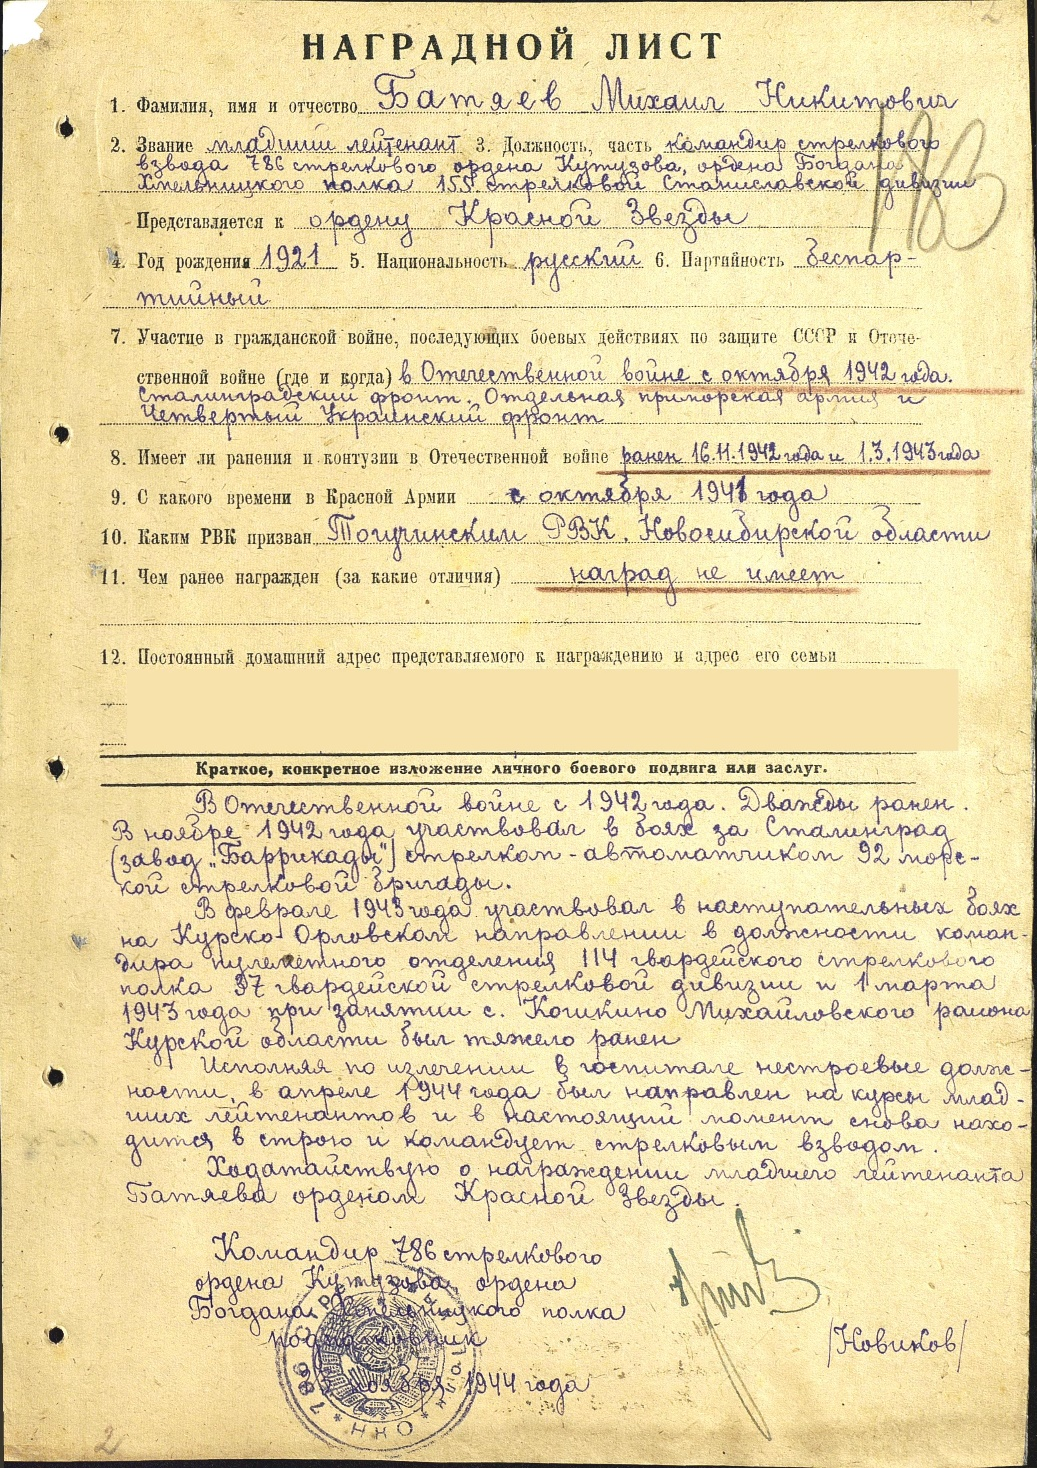 НАГРАДНОЙ ЛИСТ
1. Фамилия, имя и отчество Батяев Михаил Никитович
2. Звание младший лейтенант 3. Должность, часть командир стрелкового
взвода 786 стрелкового ордена Кутузова, ордена Богдана
Хмельницкого полка 155 стрелковой Станиславской дивизии
183
Представляется к ордену Красной Звезды
4. Год рождения 1921 5. Национальность русский 6. Партийность беспар-
тийный
7. Участие в гражданской войне, последующих боевых действиях по защите СССР и Отече-
ственной войне (где и когда) в Отечественной войне с октября 1942 года.
Сталинградский фронт, Отдельная приморская армия и
Четвертый Украинский фронт
8. Имеет ли ранения и контузии в Отечественной войне ранен 16.11.1942 года и 1.3.1943 года
9. С какого времени в Красной Армии с октября 1941 года
10. Каким РВК призван Тогучинским РВК, Новосибирской области
11. Чем ранее награжден (за какие отличия) наград не имеет
12. Постоянный домашний адрес представляемого к награждению и адрес его семьи
Краткое, конкретное изложение личного боевого подвига или заслуг.
В Отечественной войне с 1942 года. Дважды ранен.
В ноябре 1942 года участвовал в боях за Сталинград
(завод „Баррикады") стрелком-автоматчиком 92 морс-
кой стрелковой бригады.
В феврале 1943 года участвовал в наступательных боях
на Курско-Орловском направлении в должности коман-
дира пулеметного отделения 114 гвардейского стрелкового
полка 37 гвардейской стрелковой дивизии и 1 марта
1943 года при занятии с. Кошкино Михайловского района
Курской области был тяжело ранен
Исполняя по излечении в госпитале нестроевые долж-
ности, в апреле 1944 года был направлен на курсы млад-
ших лейтенантов и в настоящий момент снова нахо-
дится в строю и командует стрелковым взводом.
Ходатайствую о награждении младшего лейтенанта
Батяева орденом Красной Звезды.
Командир 786 стрелкового
ордена Кутузова, ордена
Богдана Хмельницкого полка
подполковник
/Новиков/
ноября 1944 года
786
2